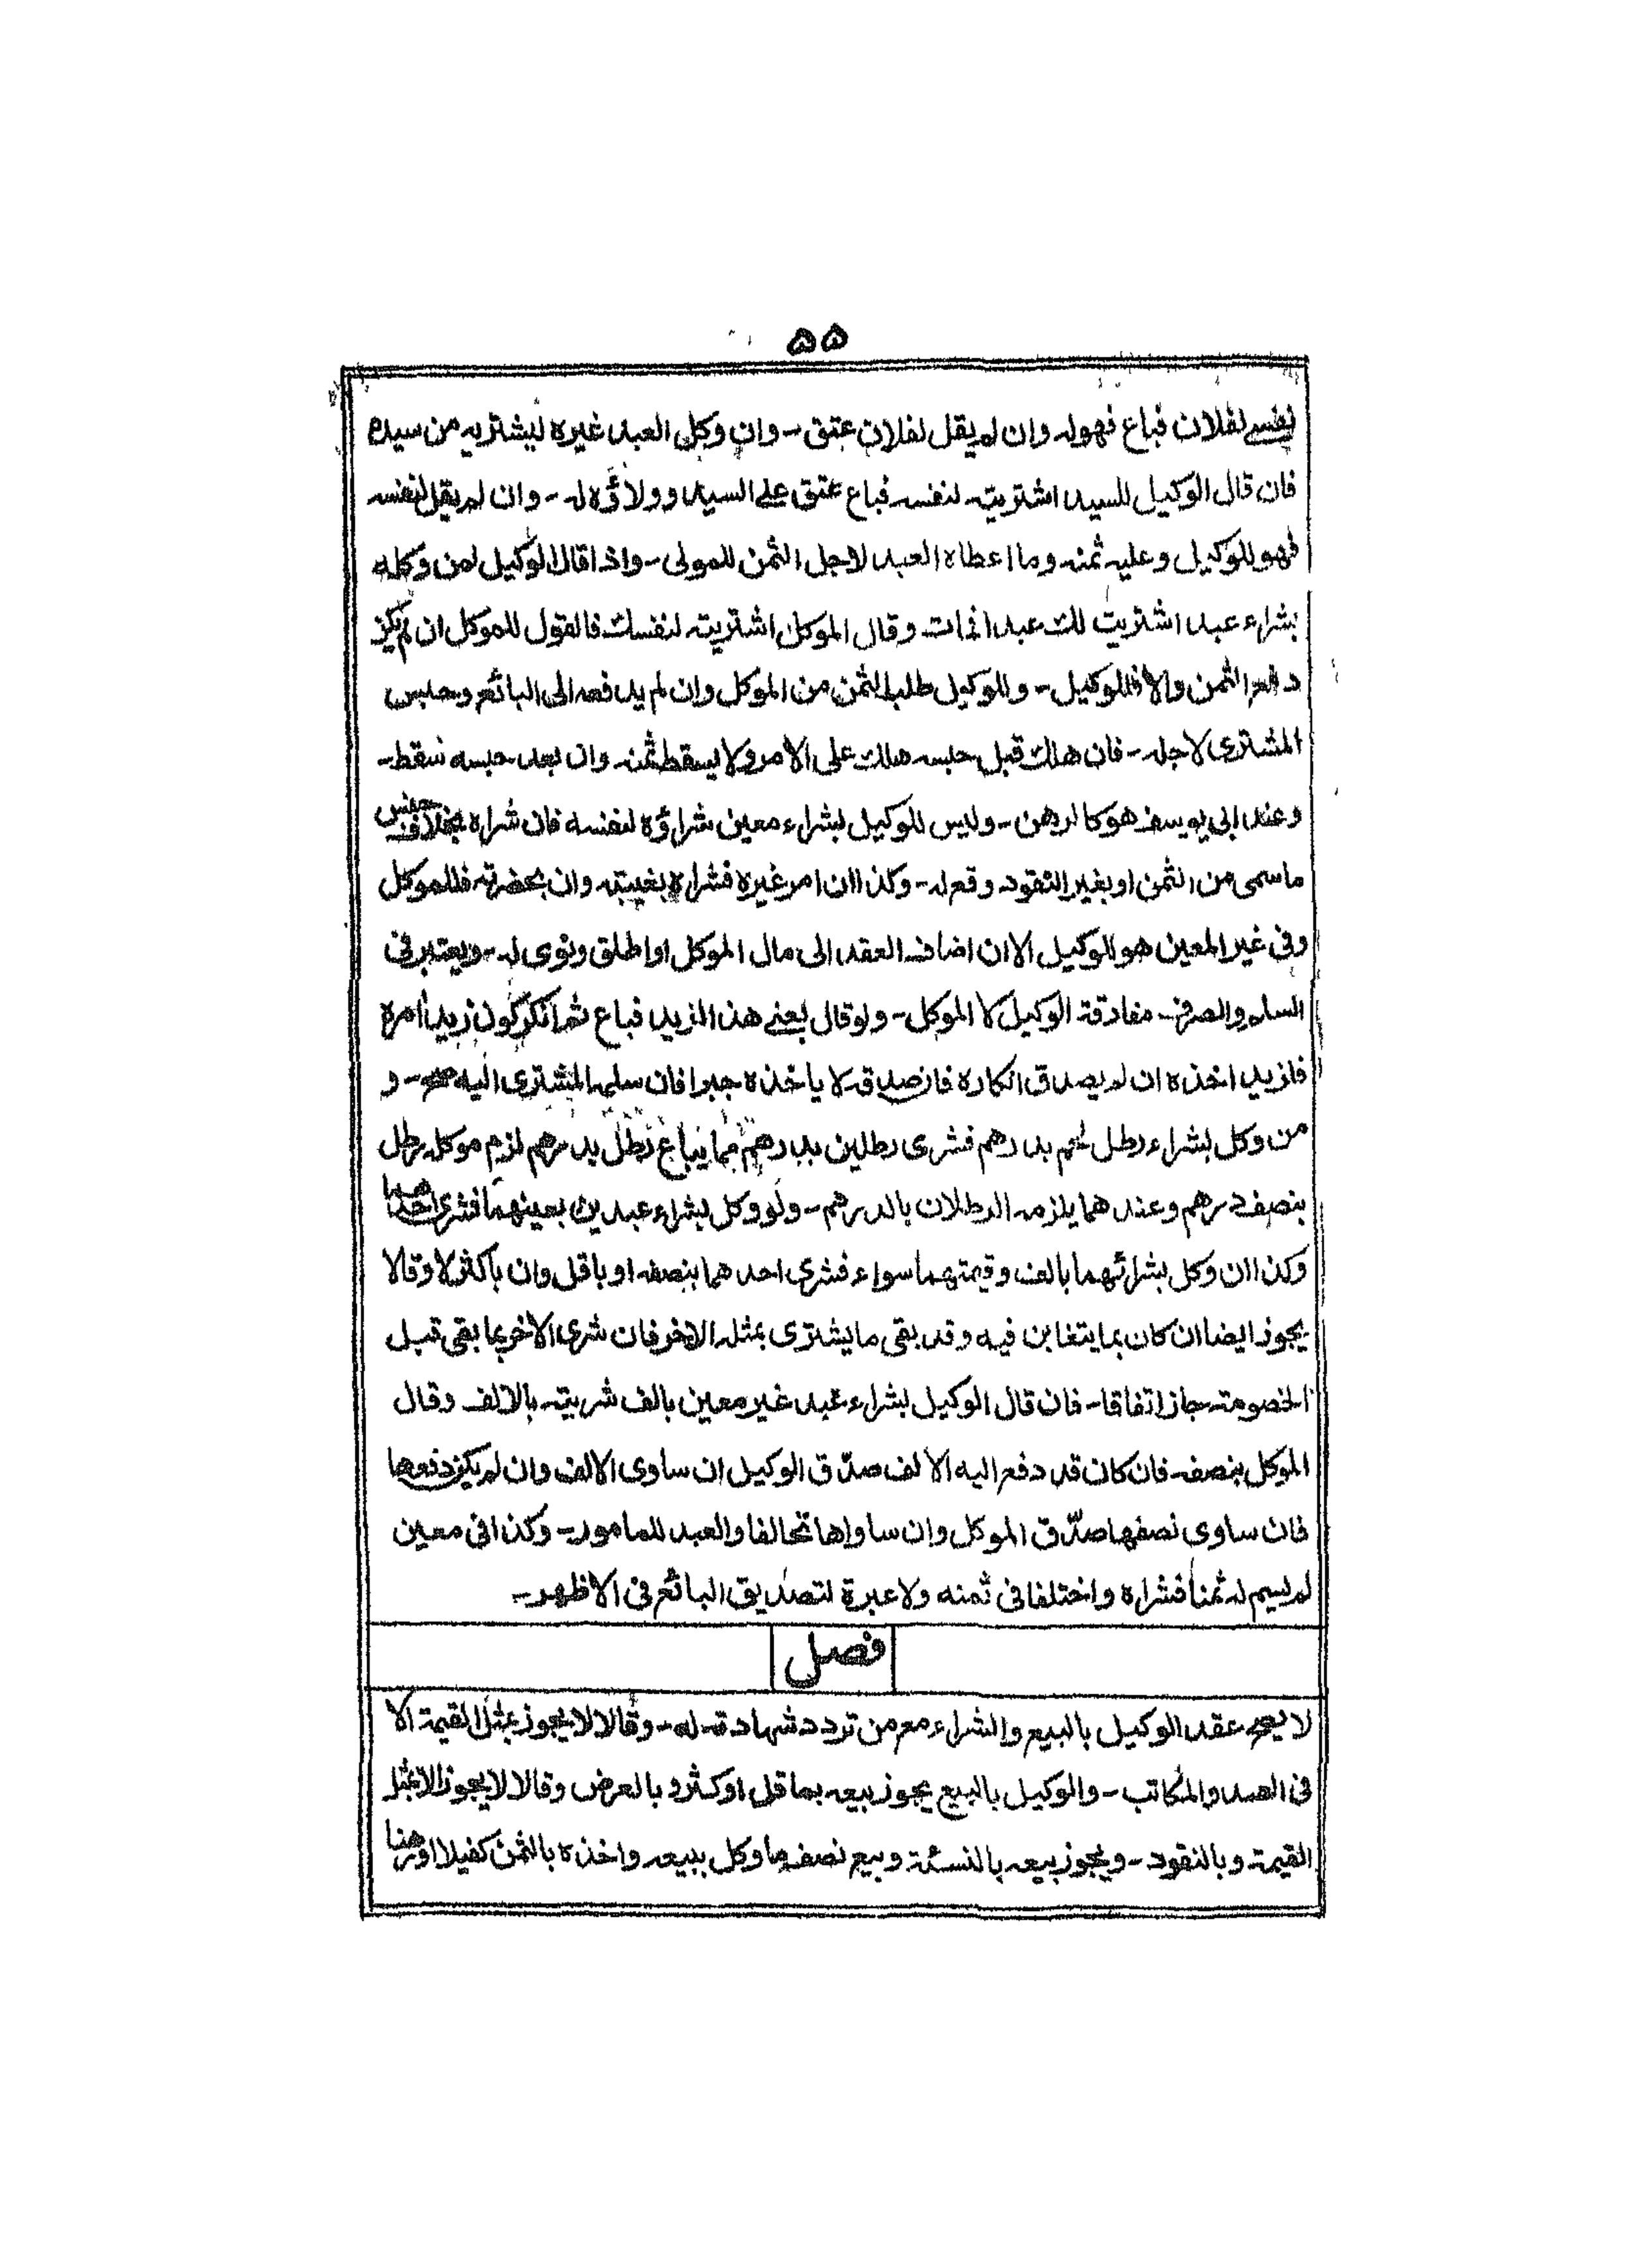 ۵۵
نفسے لفلان فباع فهوله وان لم يقل لفلان عتق - وان وكل العبد غيره ليشتريه من سيده
فان قال الوكيل للسيد اشتريته لنفسه فباع عتق علے السيد وولاؤه له - وان لم يقل لنفسه
فهو للوكيل وعليه ثمنه وما اعطاه العبد لاجل الثمن للمولى - واذا قال الوكيل لمن وكله
بشراء عبد اشتريت لك عبدا فمات وقال الموكل اشتريته لنفسك فالقول للموكل ان لم يكن
دفع الثمن والا فللوكيل - وللوكيل طلب الثمن من الموكل وان لم يدفعه الى البائع وحبس
المشترى لاجله - فان هلك قبل حبسه هلك على الامر ولا يسقط ثمنه وان بعد حبسه سقط -
وعند ابى يوسف هو كالرهن - وليس للوكيل بشراء معين شراؤه لنفسه فان شراه بخلاف جنس
ما سمى من الثمن او بغير النقود وقع له - وكذا ان امر غيره فشراه بغيبته وان بحضرته فللموكل
وفى غير المعين هو للوكيل الا ان اضاف العقد الى مال الموكل او اطلق ونوى له - ويعتبر فى
السلم والصرف مفارقة الوكيل لا الموكل - ولو قال بعنے هذا لزيد فباع ثم انكر كون زيد امره
فلزيد اخذه ان لم يصدق انكاره فان صدق لا ياخذه جبرا فان سلمه المشترى اليه صح - و
من وكل بشراء رطل لحم بدرهم فشرى رطلين بدرهم مما يباع رطل بدرهم لزم موكله رطل
بنصف درهم وعندهما يلزمه الرطلان بالدرهم - ولو وكل بشراء عبدين بعينهما فشرى احدهما
وكذا ان وكل بشرائهما بالف وقيمتهما سواء فشرى احدهما بنصفه او باقل وان باكثر لا وقالا
يجوز ايضا ان كان بما يتغابن فيه وقد بقى ما يشترى بمثله الاخر فان شرى الاخر بما بقى قبل
الخصومة جاز اتفاقا - فان قال الوكيل بشراء عبد غير معين بالف شريته بالالف وقال
الموكل بنصفه - فان كان قد دفع اليه الالف صدّق الوكيل ان ساوى الالف وان لم يكن دفعها
فان ساوى نصفها صدّق الموكل وان ساواها تحالفا والعبد للمامور - وكذا فى معين
لم يسم له ثمنا فشراه واختلفا فى ثمنه ولا عبرة لتصديق البائع فى الاظهر -
فصل
لا يصح عقد الوكيل بالبيع والشراء مع من ترد شهادته له - وقالا لا يجوز بمثل القيمة الا
فى العبد والمكاتب - والوكيل بالبيع يجوز بيعه بما قل او كثر و بالعرض وقالا لا يجوز الا بمثل
القيمة وبالنقود - ويجوز بيعه بالنسئة وبيع نصف ما وكل ببيعه واخذه بالثمن كفيلا او رهنا